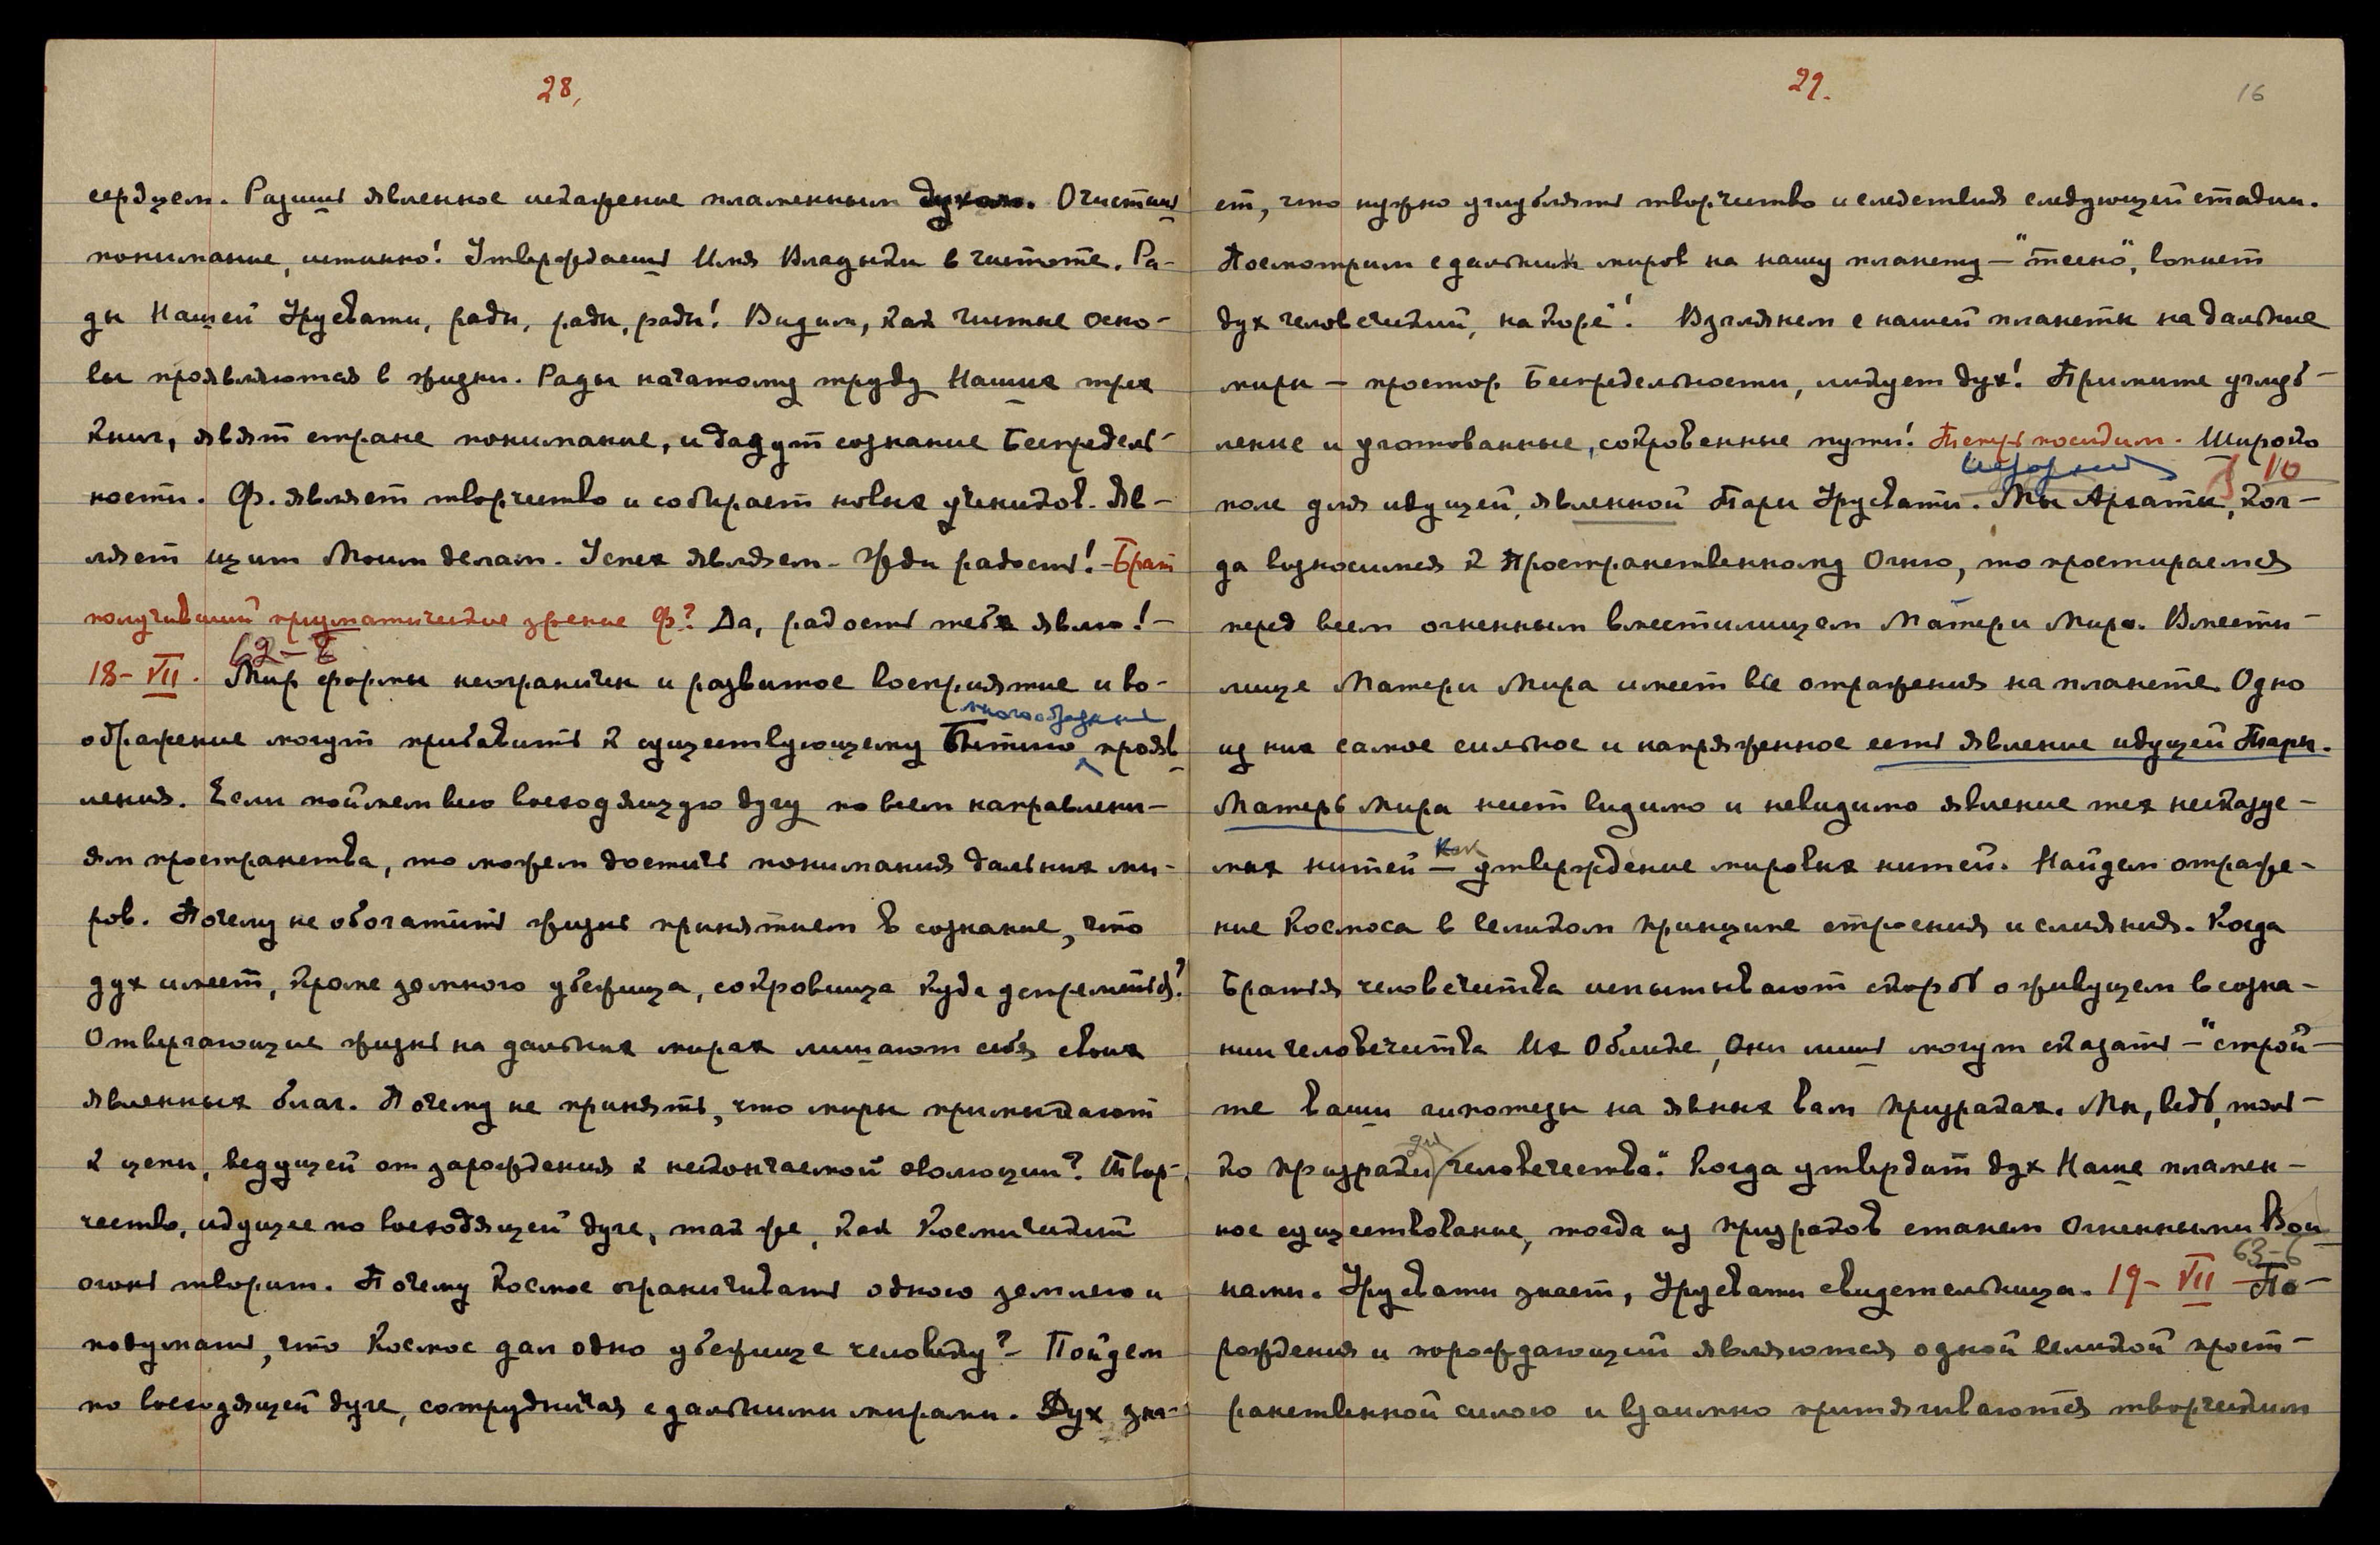 28,
сердцем. Разишь явленное искажение пламенным духом. Очистишь
понимание, истинно! Утверждаешь Имя Владыки в чистоте. Ра-
ды Нашей Урусвати, рады, рады, рады! Видим, как чистые осно-
вы проявляются в жизни. Рады начатому труду Наших трех
книг, явят стране понимание, и дадут сознание Беспредель-
ности. Ф. являет творчество и собирает новых учеников. Яв-
ляет щит Моим делам. Успех являем. Жди радость! - Брат
получивший призматическое зрение Ф? Да, радость тебе явлю! -
62-8
18-VII. Мир формы неограничен и развитое восприятие и во-
многообразные
ображение могут прибавить к существующему Бытию прояв-
ления. Если поймем всю восходящую дугу по всем направлени-
ям пространства, то можем достичь понимания дальних ми-
ров. Почему не обогатить жизнь принятием в сознание, что
дух имеет, кроме земного убежища, сокровища куда устремиться?
Отвергающие жизнь на дальних мирах лишают себя своих
явленных благ. Почему не принять, что миры примыкают
к цепи, ведущей от зарождения к нескончаемой эволюции? Твор-
чество, идущее по восходящей дуге, так же, как Космический
огонь творит. Почему Космос ограничивать одною землею и
подумать, что Космос дал одно убежище человеку? - Пойдем
по восходящей дуге, сотрудничая с дальними мирами. Дух зна-
29.
16
ет, что нужно углублять творчество и следствия следующей стадии.
Посмотрим с дальних миров на нашу планету - "тесно", вопиет
дух человеческий, "на коре"! Взглянем с нашей планеты на дальние
миры - простор Беспредельности, ликует дух! Примите углуб-
ление и уготованные, сокровенные пути! Теперь посидим. Широко
10
поле для идущей, явленной Тары Урусвати. Мы Архаты, ког-
да возносимся к Пространственному Огню, то простираемся
перед всем огненным вместилищем Матери Мира. Вмести-
лище Матери Мира имеет все отражения на планете. Одно
из них самое сильное и напряженное есть явление идущей Тары.
Матерь Мира ткет видимо и невидимо явление тех несказуе-
как
мых нитей - утверждение мировых нитей. Найдем отраже-
ние Космоса в великом принципе строения и слияния. Когда
Братья человечества испытывают скорбь о живущем в созна-
нии человечества Их Облике, Они лишь могут сказать - "строй-
те ваши гипотезы на явных вам призраках. Мы, ведь, толь-
для
ко призраки человечества." Когда утвердит дух Наше пламен-
ное существование, тогда из призраков станем Огненными Вои-
63-6
нами. Урусвати знает, Урусвати свидетельница. 19-VII - По-
рождения и порождающий являются одной великой прост-
ранственной силою и взаимно притягиваются творческим